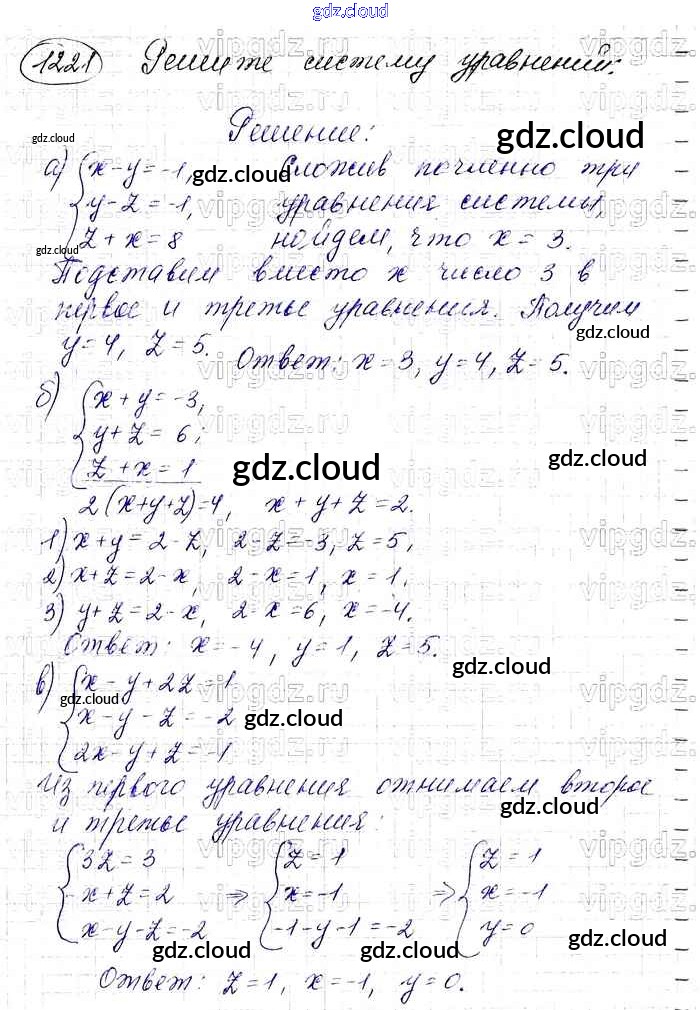 gdz.cloud
1221 Решите систему уравнений:
gdz.cloud
Решение:
gdz.cloud
а) { x - y = -1, Сложив почленно три
gdz.cloud
y - z = -1, уравнения системы,
gdz.cloud
z + x = 8 найдем, что x = 3.
Подставим вместо x число 3 в
первое и третье уравнения. Получим
gdz.cloud
y = 4, z = 5. Ответ: x = 3, y = 4, z = 5.
б) { x + y = -3,
y + z = 6;
z + x = 1
gdz.cloud gdz.cloud
2(x+y+z)=4, x + y + z = 2.
1) x + y = 2 - z, 2 - z = -3, z = 5,
2) x + z = 2 - x, 2 - x = 1, x = 1,
3) y + z = 2 - x, 2 - x = 6, x = -4.
Ответ: x = -4, y = 1, z = 5.
gdz.cloud
в) { x - y + 2z = 1
gdz.cloud
x - y - z = -2
gdz.cloud
2x - y + z = -1
Из первого уравнения отнимаем второе
gdz.cloud
и третье уравнения:
{ 3z = 3 { z = 1 { z = 1
-x + z = 2 ⇒ x = -1 ⇒ x = -1
x - y - z = -2 -1 - y - 1 = -2 y = 0
gdz.cloud gdz.cloud gdz.cloud
Ответ: z = 1, x = -1, y = 0.
vipgdz.ru